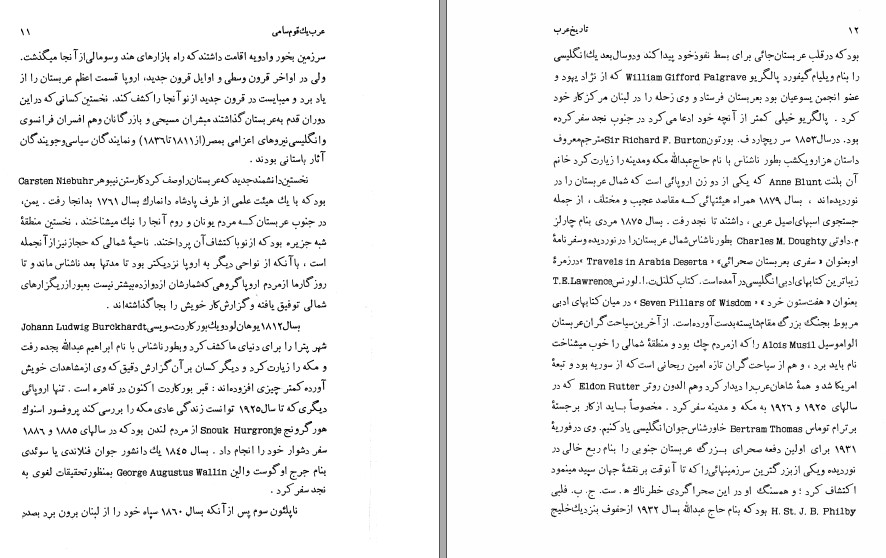 عرب یك قوم سامی ۱۱
سرزمین بخور وادویه اقامت داشتند که راه بازارهای هند وسومالی از آنجا میگذشت.
ولی در اواخر قرون وسطی و اوایل قرون جدید، اروپا قسمت اعظم عربستان را از
یاد برد و میبایست در قرون جدید از نو آنجا را کشف کند. نخستین کسانی که در این
دوران قدم به عربستان گذاشتند مبشران مسیحی و بازرگانان وهم افسران فرانسوی
و انگلیسی نیروهای اعزامی بمصر (از ۱۸۱۱ تا ۱۸۳۶) و نمایندگان سیاسی و جویندگان
آثار باستانی بودند .
نخستین دانشمند جدید که عربستان را وصف کرد کارستن نیبوهر Carsten Niebuhr
بود که با یك هیئت علمی از طرف پادشاه دانمارك بسال ۱۷۶۱ بدانجا رفت . یمن،
در جنوب عربستان که مردم یونان و روم آنجا را نیك میشناختند، نخستین منطقهٔ
شبه جزیره بود که از نو با کتشاف آن پرداختند. ناحیهٔ شمالی که حجاز نیز از آنجمله
است ، با آنکه از نواحی دیگر به اروپا نزدیکتر بود تا مدتها بعد ناشناس ماند و تا
روزگار ما از مردم اروپا گروهی که شمارشان از دوازده بیشتر نیست بعبور از ریگزارهای
شمالی توفیق یافته و گزارش کار خویش را بجا گذاشته اند .
بسال ۱۸۱۲ یوهان لودویك بور کاردت سویسی Johann Ludwig Burckhardt
شهر پترا را برای دنیای ما کشف کرد و بطور ناشناس با نام ابراهیم عبدالله بجده رفت
و مکه را زیارت کرد و دیگر کسان بر آن گزارش دقیق که وی از مشاهدات خویش
آورده کمتر چیزی افزوده اند : قبر بور کاردت اکنون در قاهره است . تنها اروپائی
دیگری که تا سال ۱۹۲۵ توانست زندگی عادی مکه را بررسی کند پروفسور اسنوك
هور گرونج Snouk Hurgronje از مردم لندن بود که در سالهای ۱۸۸۵ و ۱۸۸۶
سفر دشوار خود را انجام داد . بسال ۱۸۴۵ یك دانشور جوان فنلاندی یا سوئدی
بنام جرج اوگوست والین George Augustus Wallin بمنظور تحقیقات لغوی به
نجد سفر کرد .
ناپلئون سوم پس از آنکه بسال ۱۸۶۰ سپاه خود را از لبنان برون برد بصدد
۱۲ تاریخ عرب
بود که در قلب عربستان جائی برای بسط نفوذ خود پیدا کند و دو سال بعد یك انگلیسی
را بنام ویلیام گیفورد پالگریو William Gifford Palgrave که از نژاد یهود و
عضو انجمن یسوعیان بود بعربستان فرستاد و وی زحله را در لبنان مرکز کار خود
کرد . پالگریو خیلی کمتر از آنچه خود ادعا می کرد در جنوب نجد سفر کرده
بود. در سال ۱۸۵۳ سر ریچارد ف. بورتون Sir Richard F. Burton مترجم معروف
داستان هزار و یکشب بطور ناشناس با نام حاج عبدالله مکه ومدینه را زیارت کرد خانم
آن بلنت Anne Blunt که یکی از دو زن اروپائی است که شمال عربستان را در
نوردیده اند ، بسال ۱۸۷۹ همراه هیئتهائی کـه مقاصد عجیب و مختلف ، از جمله
جستجوی اسبهای اصیل عربی ، داشتند تا نجد رفت . بسال ۱۸۷۵ مردی بنام چارلز
م.داوتی Charles M. Doughty بطور ناشناس شمال عربستان را در نوردیده و سفر نامهٔ
او بعنوان « سفری بعربستان صحرائی» « Travels in Arabia Deserta » در زمرهٔ
زیباترین کتابهای ادبی انگلیسی در آمده است. کتاب کلنل ت.ا. لورنس T.E.Lawrence
بعنوان « هفت ستون خرد » « Seven Pillars of Wisdom » در میان کتابهای ادبی
مربوط بجنگ بزرگ مقام شایسته بدست آورده است. از آخرین سیاحت گران عربستان
الواموسیل Alois Musil را که از مردم چك بود و منطقهٔ شمالی را خوب میشناخت
نام باید برد ، و هم از سیاحت گران تازه امین ریحانی است که از سوریه بود و تبعهٔ
امریکا شد و همهٔ شاهان عرب را دیدار کرد وهم الدون روتر Eldon Rutter که در
سالهای ۱۹۲۵ و ۱۹۲۶ به مکه و مدینه سفر کرد . مخصوصاً بـاید از کار برجستهٔ
برترام توماس Bertram Thomas خاورشناس جوان انگلیسی یاد کنیم. وی در فوریهٔ
۱۹۳۱ برای اولین دفعه صحرای بـزرگ عربستان جنوبی را بنام ربع خالی در
نوردیده و یکی از بزرگترین سرزمینهائی را که تا آنوقت بر نقشهٔ جهان سپید مینمود
اکتشاف کرد ؛ و همسنگ او در این صحرا گردی خطرناك ه . ست. ج. ب. فلبی
H. St. J. B. Philby بود که بنام حاج عبدالله بسال ۱۹۳۲ از حفوف بنزدیك خلیج